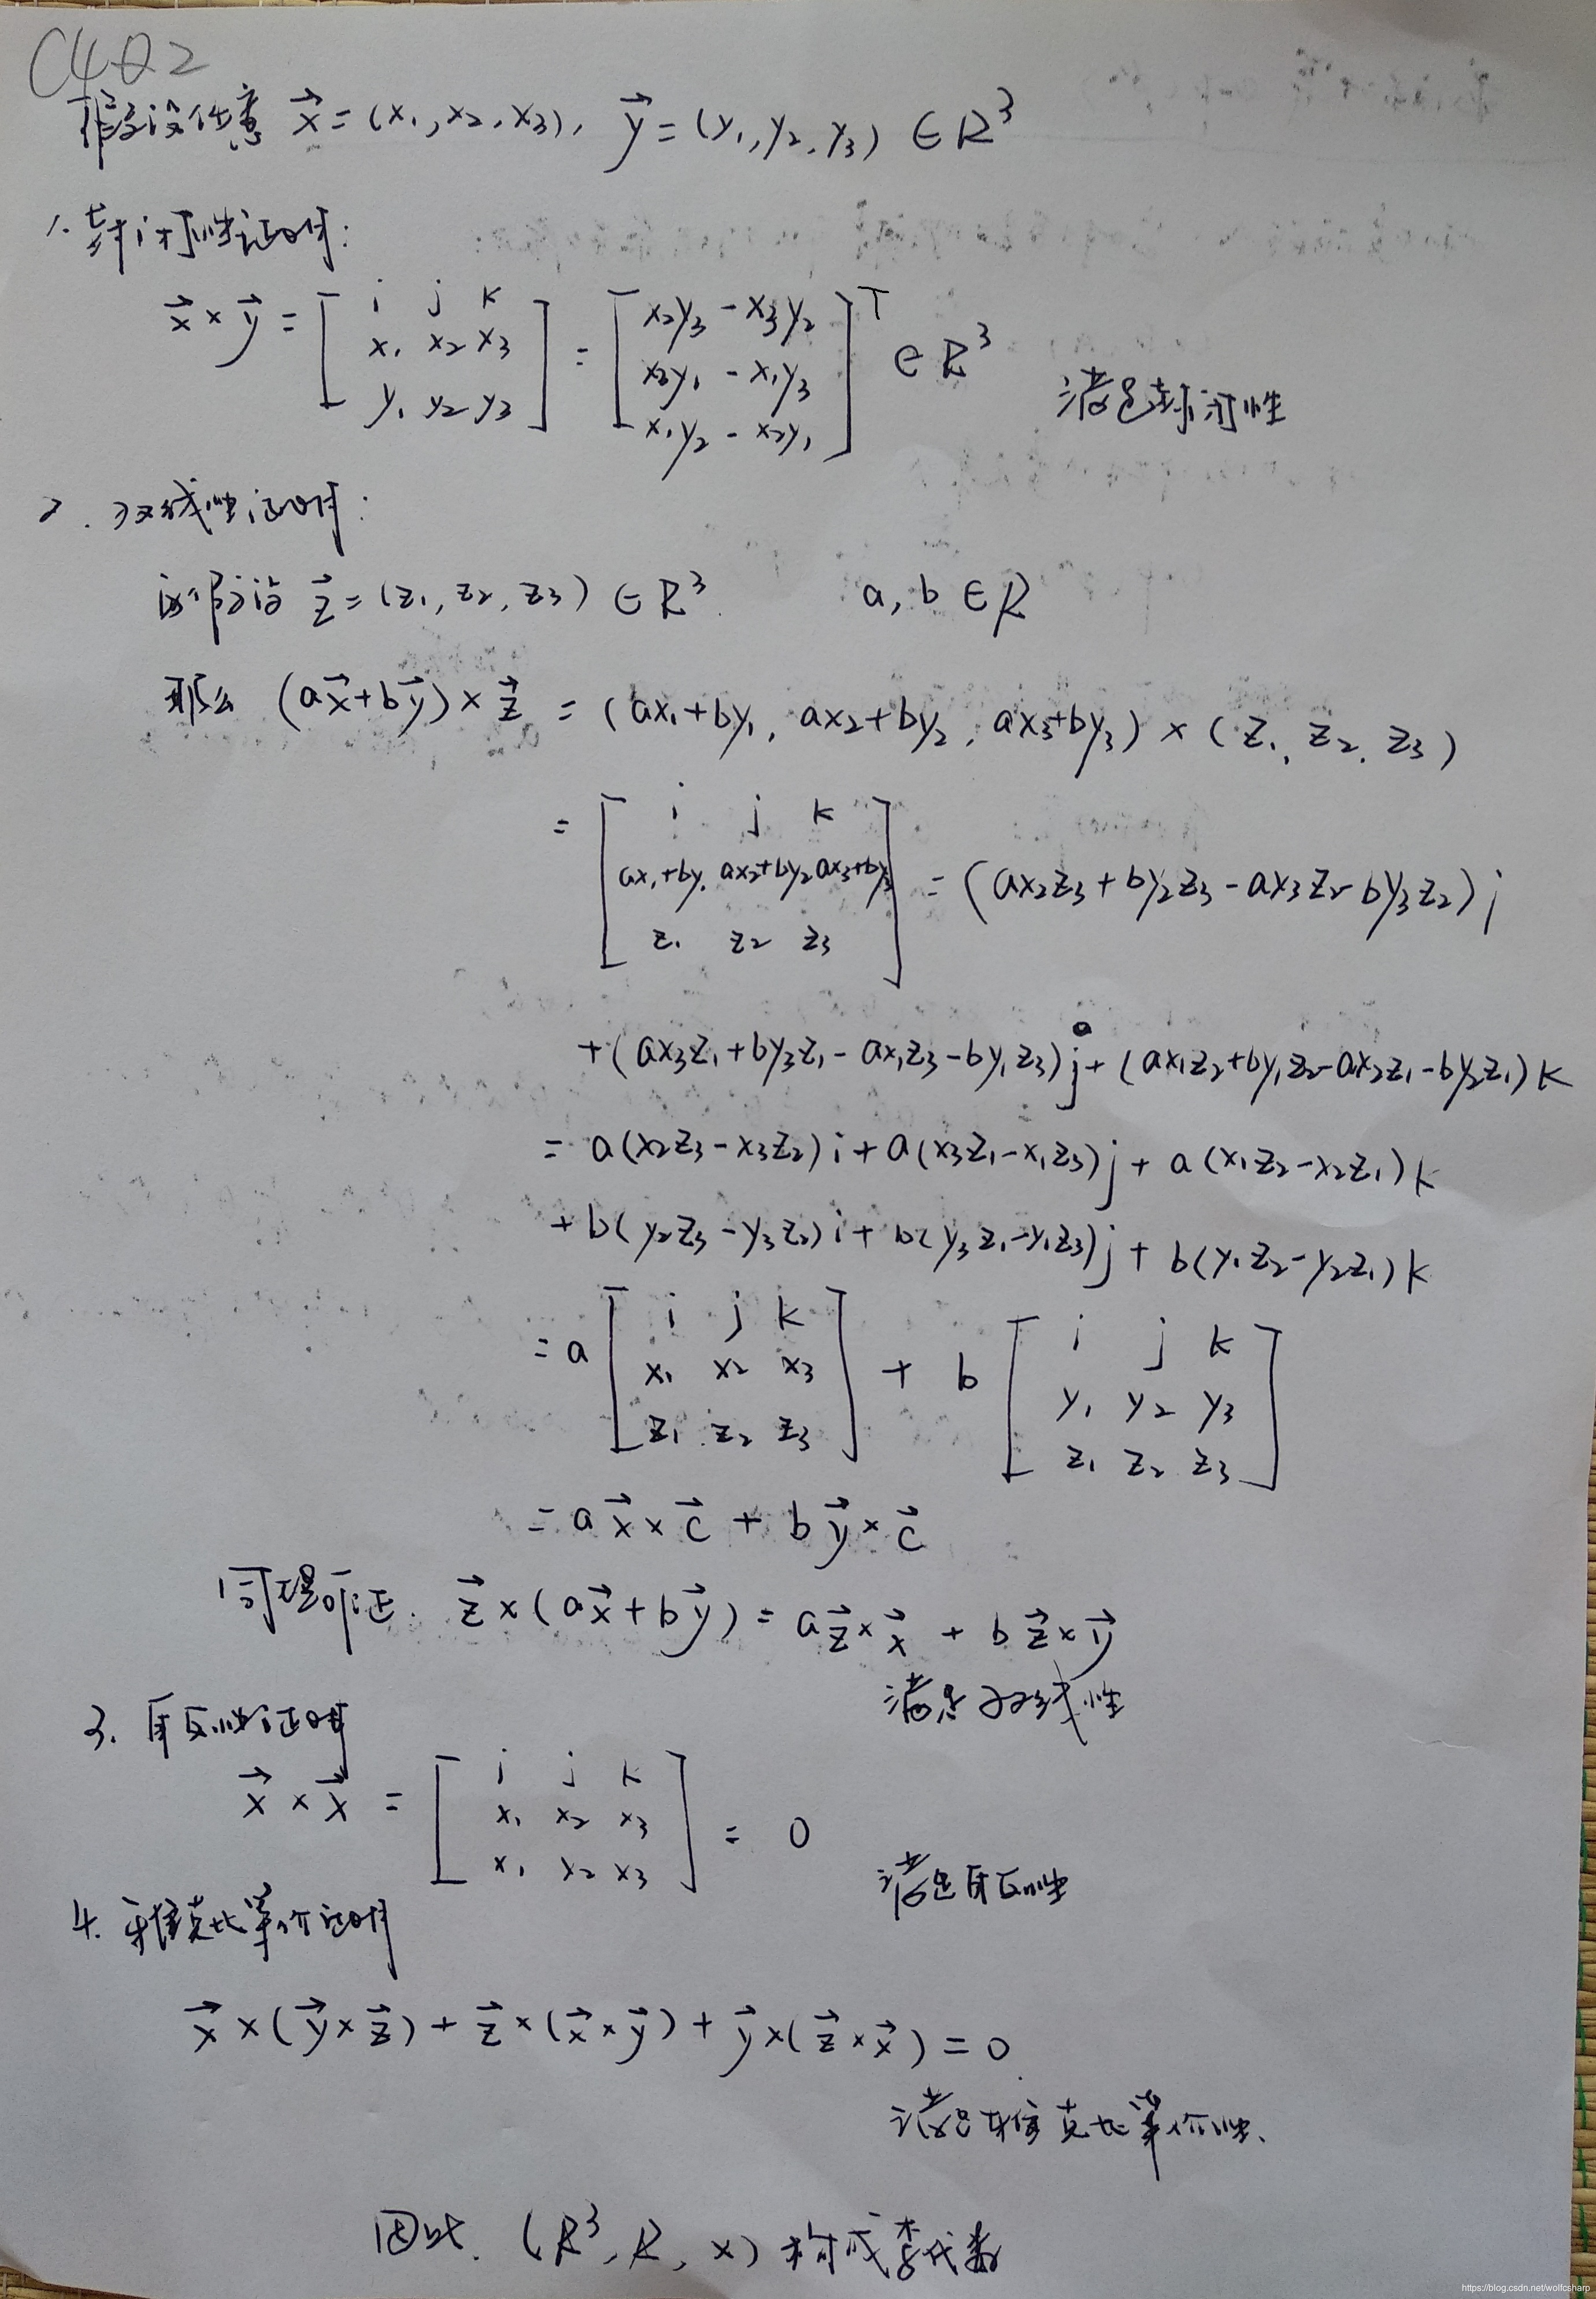 C4Q2
假设任意 x⃗ = (x₁, x₂, x₃), y⃗ = (y₁, y₂, y₃) ∈ R³
1. 封闭性证明:
x⃗ × y⃗ = [ i j k ; x₁ x₂ x₃ ; y₁ y₂ y₃ ] = [ x₂y₃ - x₃y₂ ; x₃y₁ - x₁y₃ ; x₁y₂ - x₂y₁ ]ᵀ ∈ R³
满足封闭性
2. 双线性证明:
假设 z⃗ = (z₁, z₂, z₃) ∈ R³. a, b ∈ R
那么 (ax⃗ + by⃗) × z⃗ = (ax₁+by₁, ax₂+by₂, ax₃+by₃) × (z₁, z₂, z₃)
= [ i j k ; ax₁+by₁ ax₂+by₂ ax₃+by₃ ; z₁ z₂ z₃ ] = (ax₂z₃ + by₂z₃ - ax₃z₂ - by₃z₂) i
+ (ax₃z₁ + by₃z₁ - ax₁z₃ - by₁z₃) j + (ax₁z₂ + by₁z₂ - ax₂z₁ - by₂z₁) k
= a(x₂z₃ - x₃z₂) i + a(x₃z₁ - x₁z₃) j + a(x₁z₂ - x₂z₁) k
+ b(y₂z₃ - y₃z₂) i + b(y₃z₁ - y₁z₃) j + b(y₁z₂ - y₂z₁) k
= a [ i j k ; x₁ x₂ x₃ ; z₁ z₂ z₃ ] + b [ i j k ; y₁ y₂ y₃ ; z₁ z₂ z₃ ]
= a x⃗ × c⃗ + b y⃗ × c⃗
同理可证. z⃗ × (ax⃗ + by⃗) = a z⃗ × x⃗ + b z⃗ × y⃗
满足双线性
3. 自反性证明
x⃗ × x⃗ = [ i j k ; x₁ x₂ x₃ ; x₁ x₂ x₃ ] = 0
满足自反性
4. 雅克比等价证明
x⃗ × (y⃗ × z⃗) + z⃗ × (x⃗ × y⃗) + y⃗ × (z⃗ × x⃗) = 0
满足雅克比等价性.
因此. (R³, R, ×) 构成李代数
https://blog.csdn.net/wolfcsharp